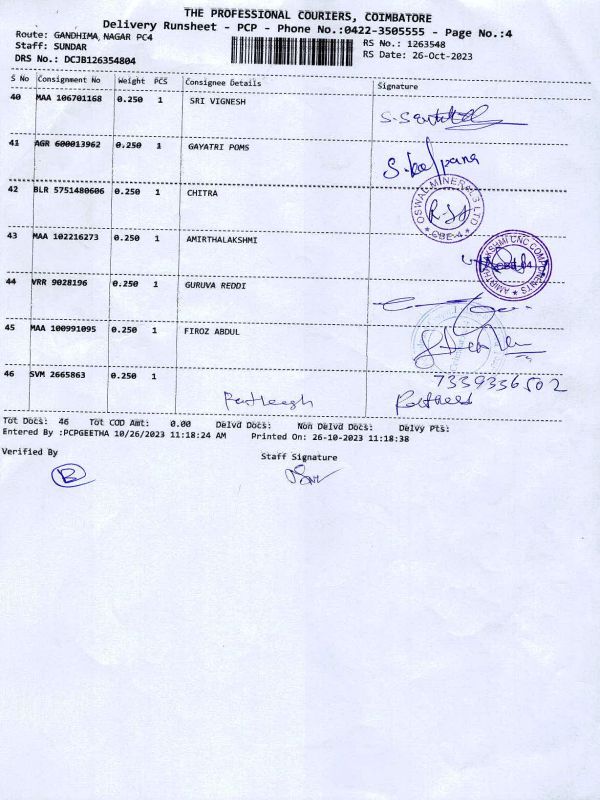 THE PROFESSIONAL COURIERS, COIMBATORE
Delivery Runsheet - PCP - Phone No.:0422-3505555 - Page No.:4
Route: GANDHIMA NAGAR PC4
RS No.: 1263548
Staff: SUNDAR
RS Date: 26-Oct-2023
DRS No.: DCJB126354804
S No Consignment No Weight PCS Consignee Details Signature
40 MAA 106701168 0.250 1 SRI VIGNESH
41 AGR 600013962 0.250 1 GAYATRI POMS S. Kalpana
42 BLR 5751480606 0.250 1 CHITRA
OSWAL MINERALS LTD
* CBE-4 *
43 MAA 102216273 0.250 1 AMIRTHALAKSHMI
AMIRTHALAKSHMI CNC COMPONENTS
44 VRR 9028196 0.250 1 GURUVA REDDI
45 MAA 100991095 0.250 1 FIROZ ABDUL
46 SVM 2665863 0.250 1 7339336502
Tot Docs: 46 Tot COD Amt: 0.00 Delvd Docs: Non Delvd Docs: Delvy Pts:
Entered By :PCPGEETHA 10/26/2023 11:18:24 AM Printed On: 26-10-2023 11:18:38
Verified By Staff Signature
B